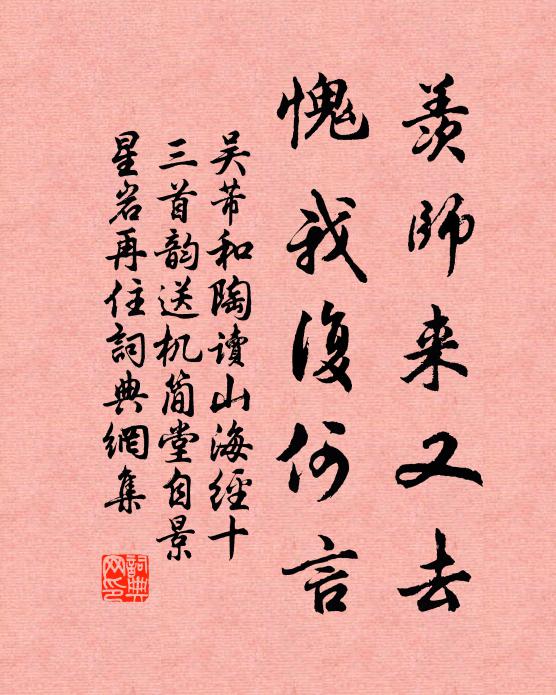 羨師来又去
愧我復何言
吴芾和陶讀山海經十
三首韵送机简堂自景
星岩再住詞典網集
詞典网印